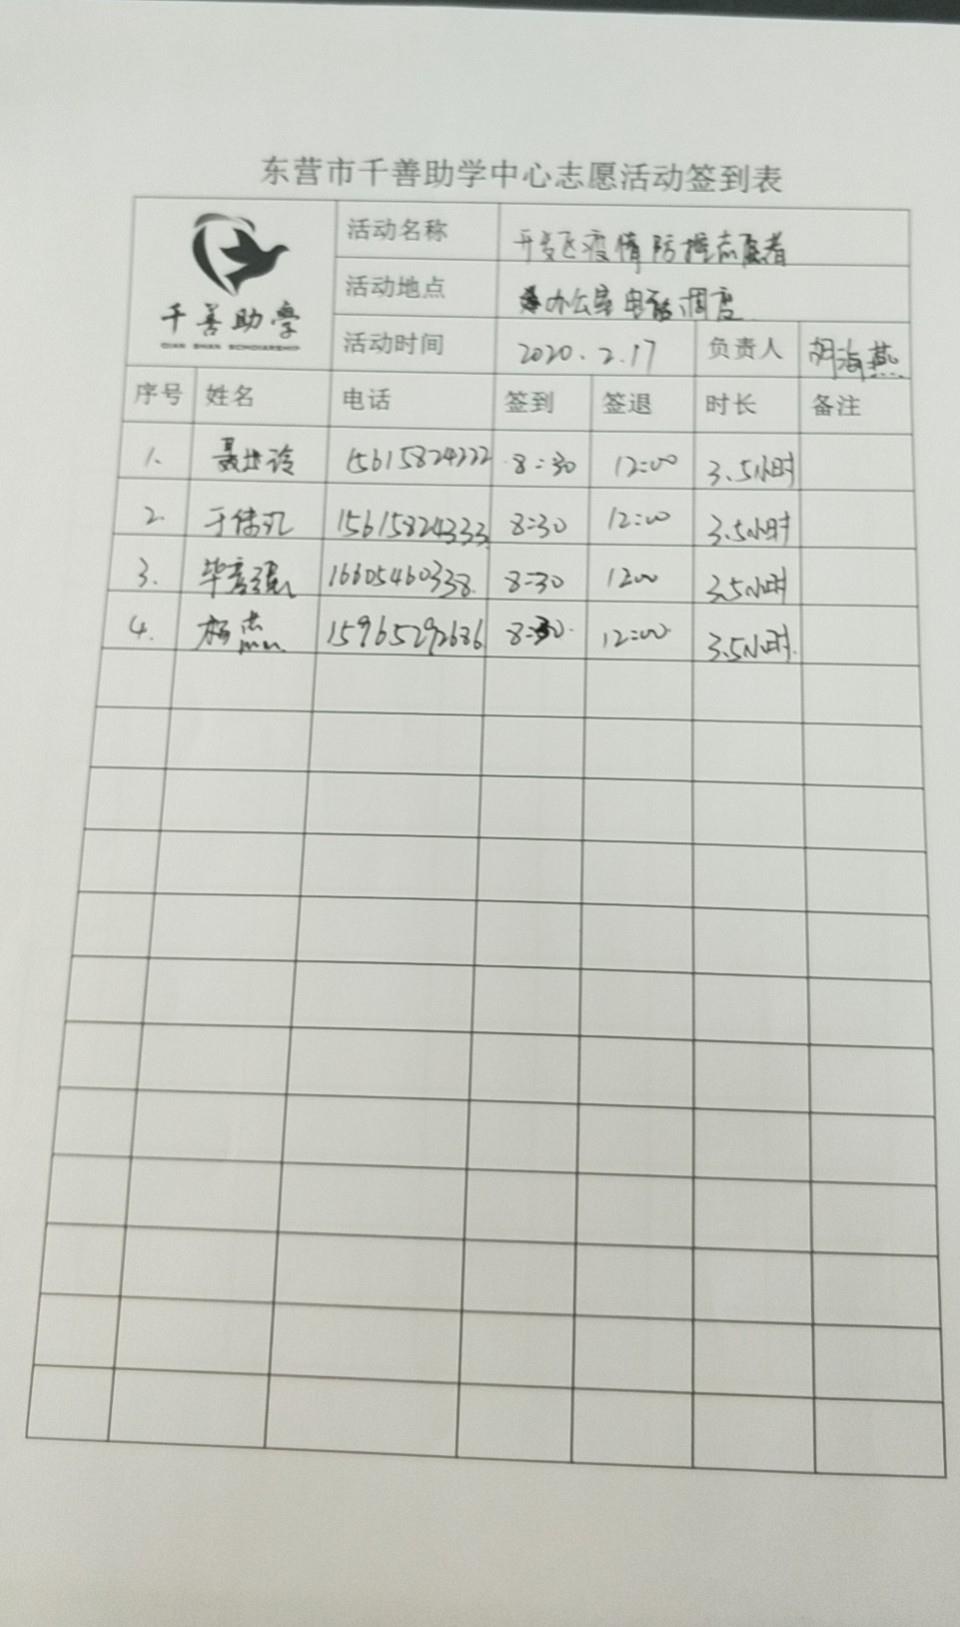 东营市千善助学中心志愿活动签到表
千善助学
QIAN SHAN SCHOLARSHIP
活动名称 开发区疫情防控志愿者
活动地点 办公室电话调度
活动时间 2020.2.17 负责人 胡海燕
序号 姓名 电话 签到 签退 时长 备注
1. 15615824222 8:30 12:00 3.5小时
2. 于伟 15615824333 8:30 12:00 3.5小时
3. 毕彦强 16605460338 8:30 1200 3.5小时
4. 杨杰 15965292686 8:30 12:00 3.5小时